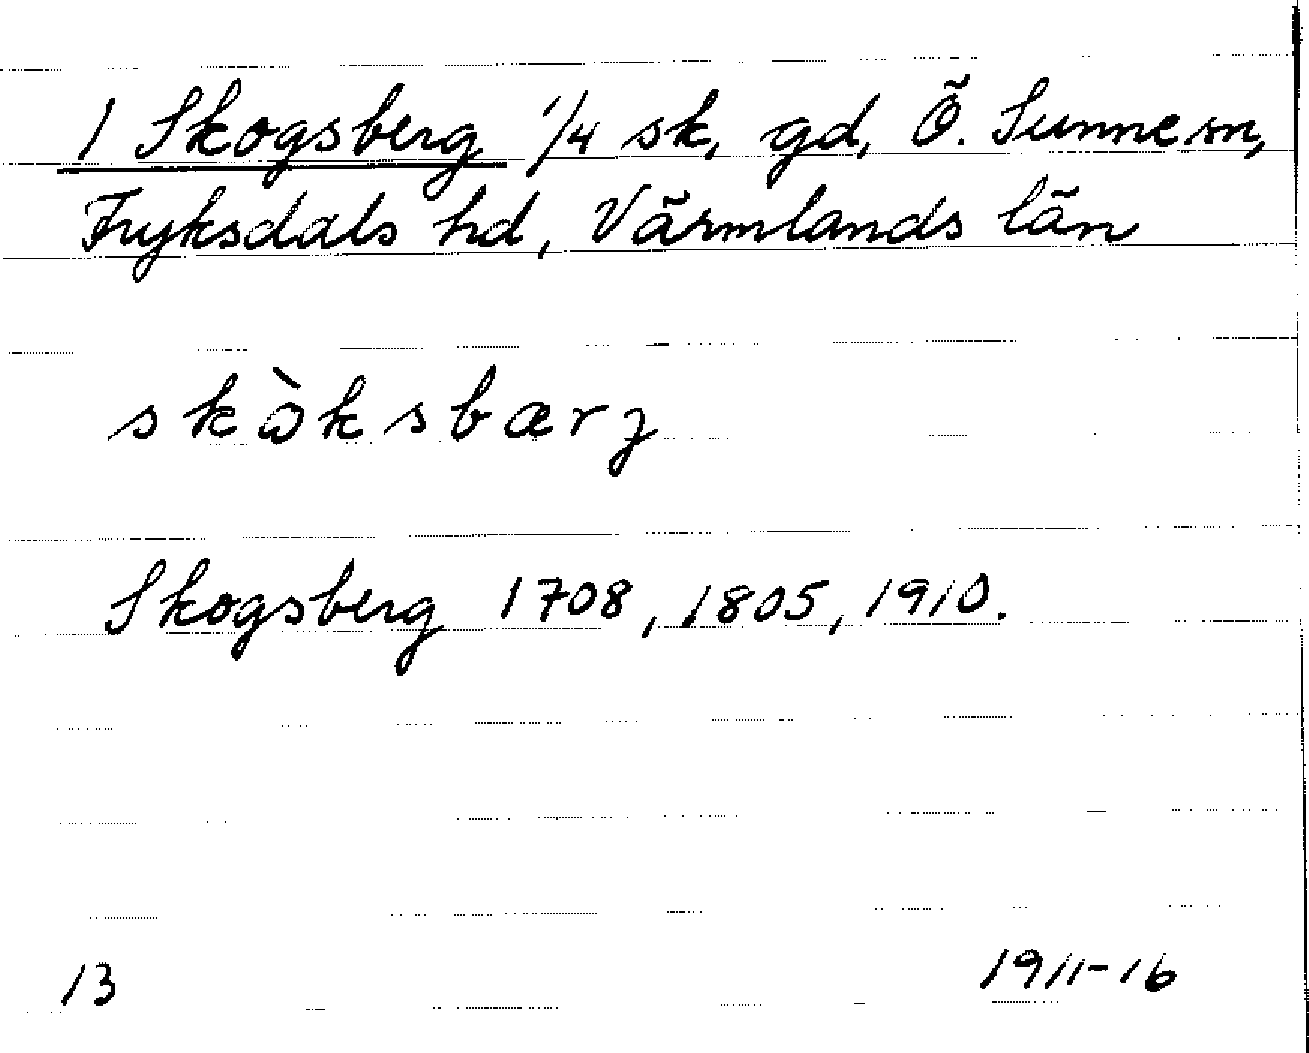 1 Skogsberg 1/4 sk, gd, Ö. Sunne sn,
Fryksdals hd, Värmlands län
skàksbærj
Skogsberg 1708, 1805, 1910.
13
1911-16